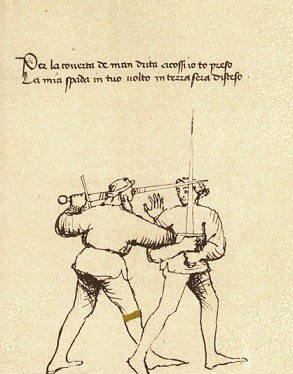 Per la coverta de man dritta cicossi io to preso
La mia spada in tuo volto in terra sera disteso